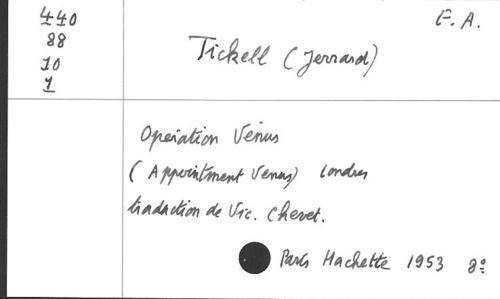 440
88
10
1
E. A.
Tickell (Jerrard)
Operation Vénus
(Appointment Venus) Londres
traduction de Vic. Chevet.
Paris Hachette 1953 8º